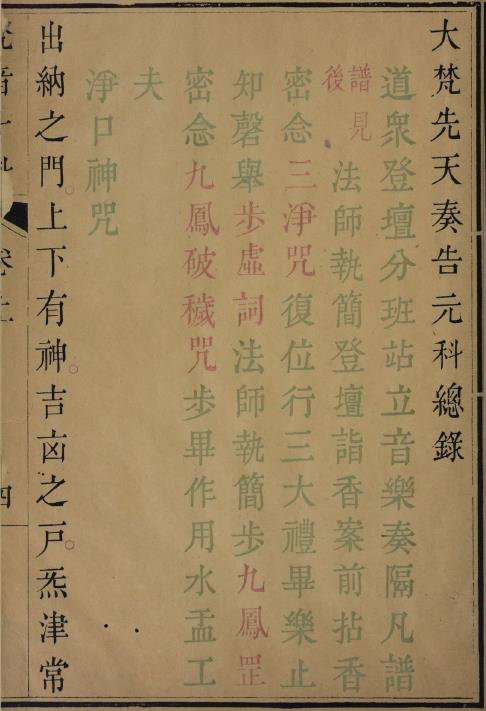 大梵先天奏告元科總錄
道衆登壇分班站立音樂奏隔凡譜
譜見後法師執簡登壇詣香案前拈香
密念三淨咒復位行三大禮畢樂止
知磬舉步虛詞法師執簡步九鳳罡
密念九鳳破穢咒步畢作用水盂工
夫
淨口神咒
出納之門上下有神吉凶之戸炁津常
卷
四